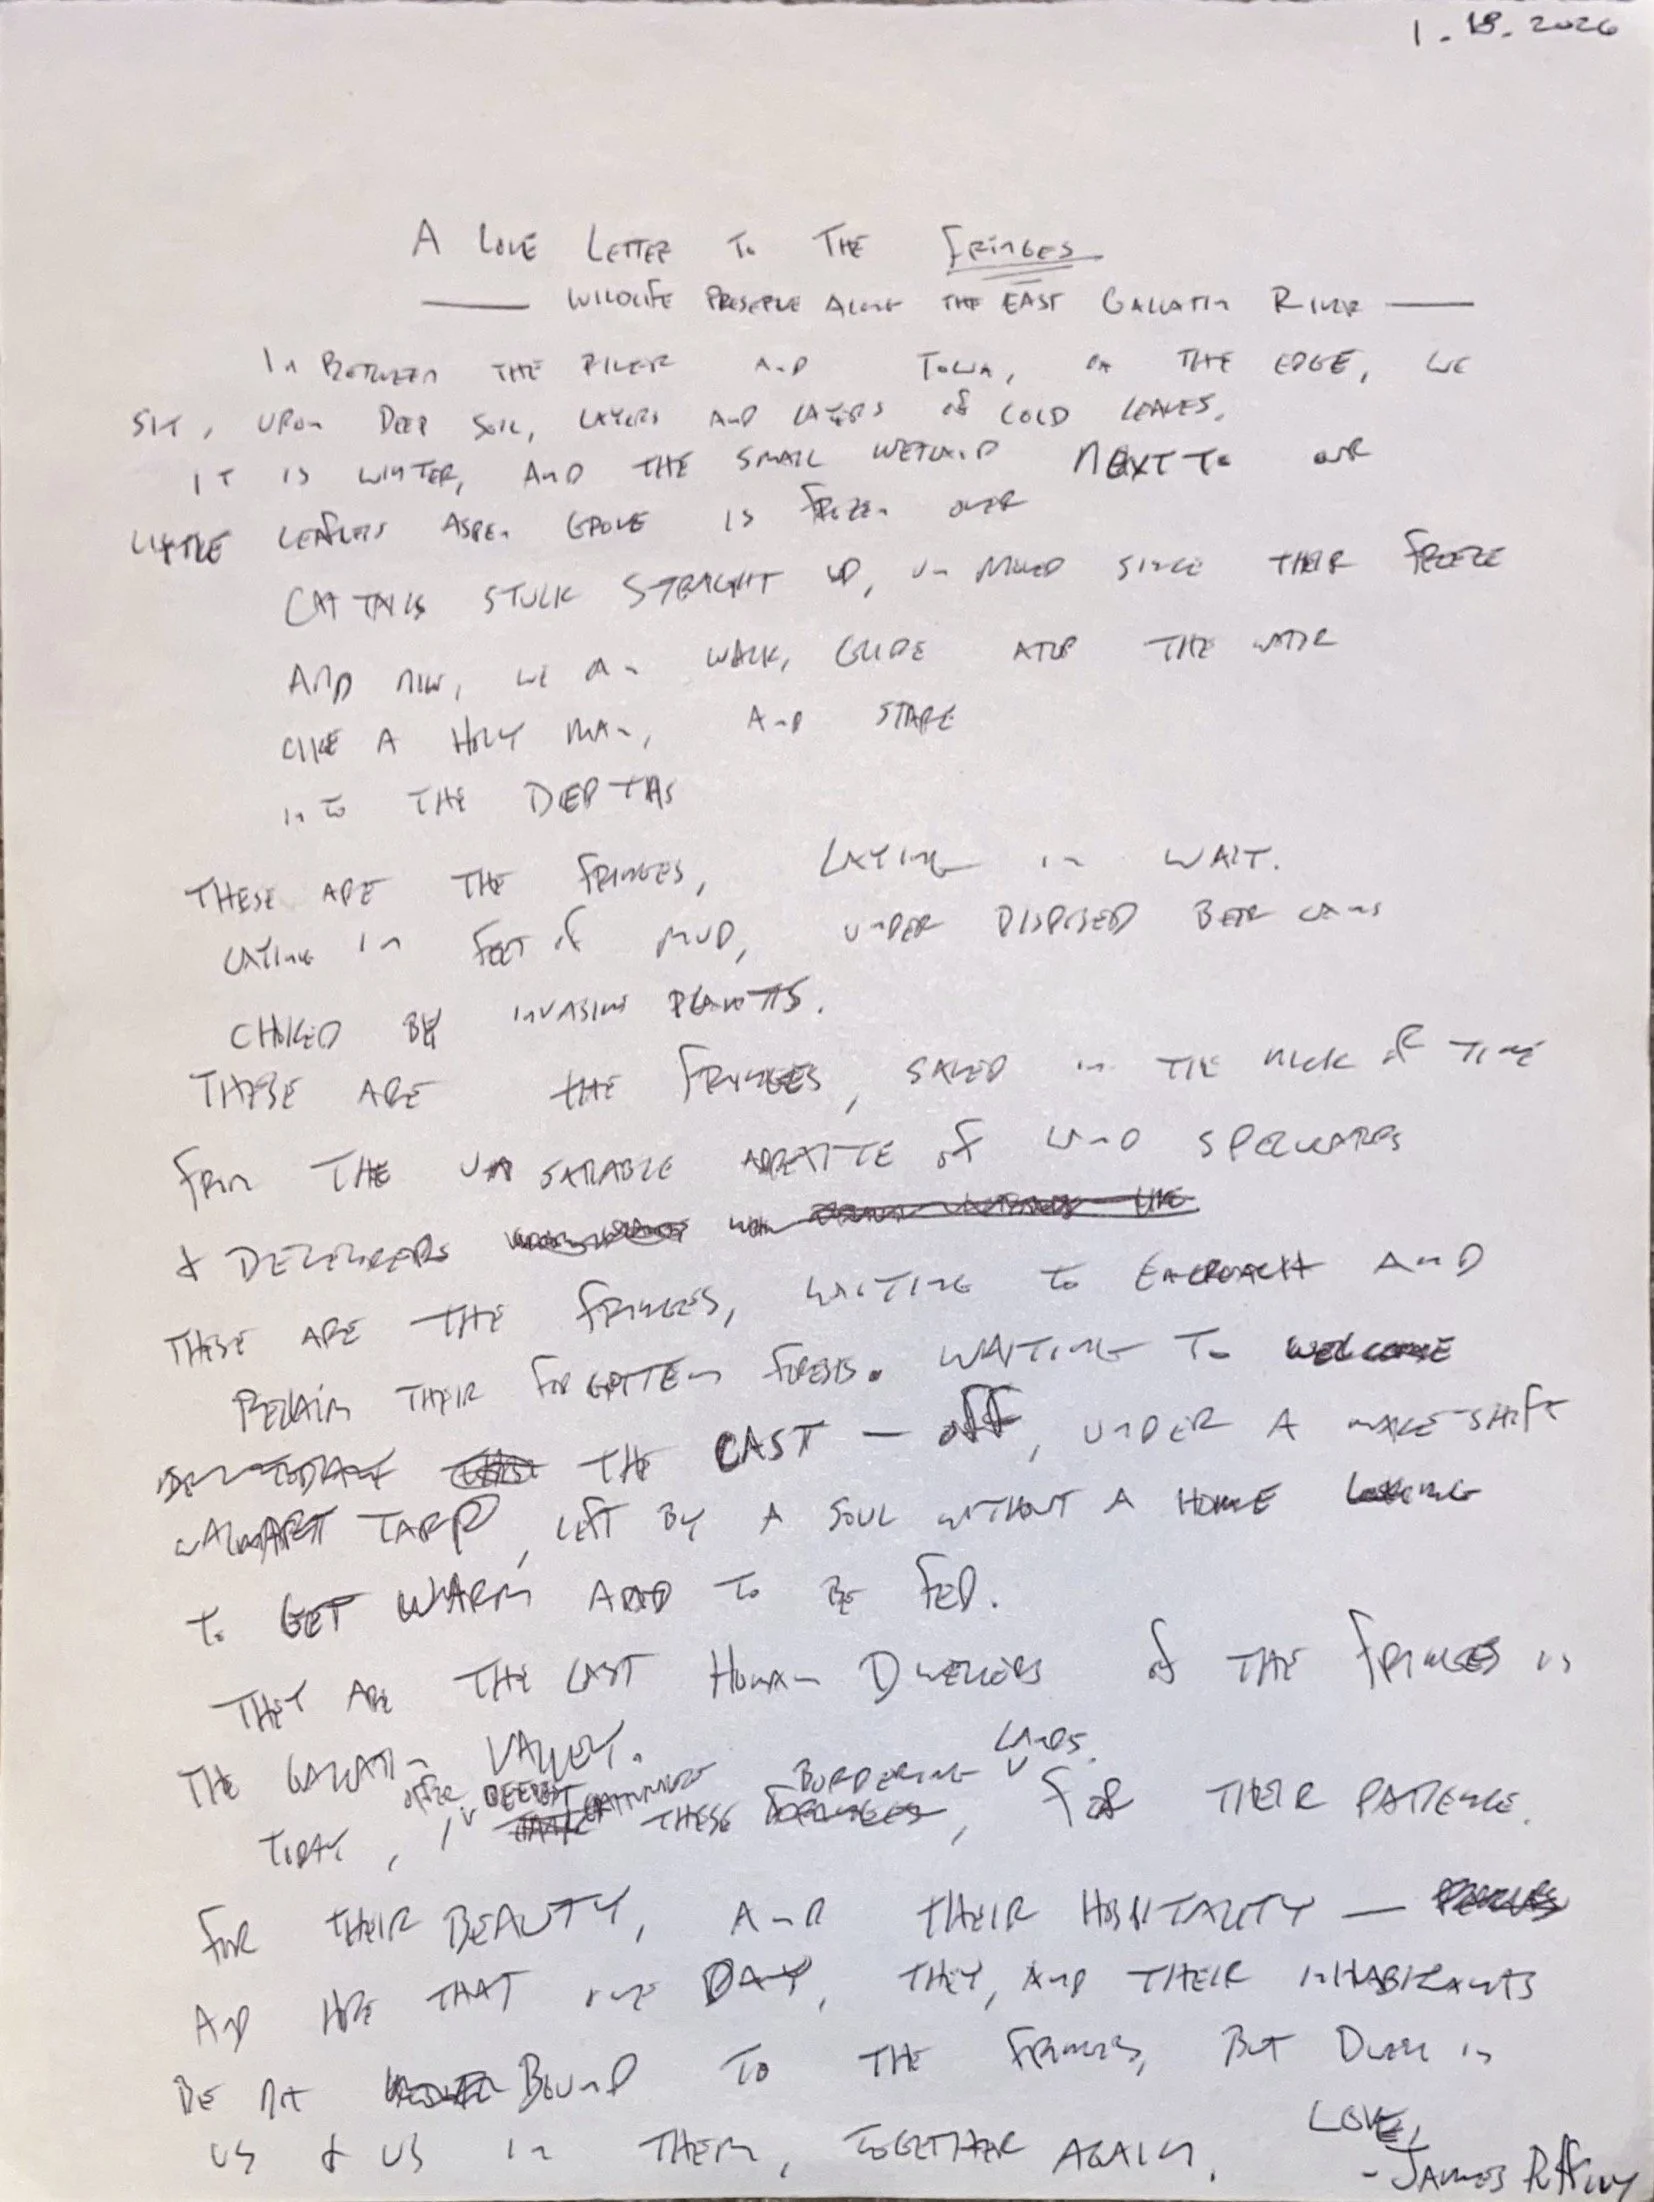 1.18.2026
A LOVE LETTER TO THE FRINGES
— WILDLIFE PRESERVE ALONG THE EAST GALLATIN RIVER —
IN BETWEEN THE RIVER AND TOWN, ON THE EDGE, WE
SIT, UPON DEEP SOIL, LAYERS AND LAYERS OF COLD LEAVES.
IT IS WINTER, AND THE SMALL WETLAND NEXT TO OUR
LITTLE LEAFLESS ASPEN GROVE IS FROZEN OVER
CAT TAILS STUCK STRAIGHT UP, UN MOVED SINCE THEIR FREEZE
AND NOW, WE CAN WALK, GLIDE ATOP THE WATER
LIKE A HOLY MAN, AND STARE
INTO THE DEPTHS
THESE ARE THE FRINGES, LAYING IN WAIT.
LAYING IN FEET OF MUD, UNDER DISPOSED BEER CANS
CHOKED BY INVASIVE PLANTS.
THESE ARE THE FRINGES, SAVED IN THE NICK OF TIME
FROM THE UNSATIABLE APPETITE OF LAND SPECULATORS
& DEVELOPERS
THESE ARE THE FRINGES, WAITING TO ENCROACH AND
RECLAIM THEIR FORGOTTEN FORESTS. WAITING TO WELCOME
THE CAST-OFF, UNDER A MAKE-SHIFT
WALMART TARP, LEFT BY A SOUL WITHOUT A HOME LOOKING
TO GET WARM AND TO BE FED.
THEY ARE THE LAST HUMAN DWELLERS OF THE FRINGES IN
THE GALLATIN VALLEY.
TODAY, I OFFER DEEPEST GRATITUDE THESE BORDERING LANDS, FOR THEIR PATIENCE.
FOR THEIR BEAUTY, AND THEIR HOSPITALITY —
AND HOPE THAT ONE DAY, THEY, AND THEIR INHABITANTS
BE NOT BOUND TO THE FRINGES, BUT DWELL IN
US & US IN THEM, TOGETHER AGAIN.
LOVE,
- JAMES